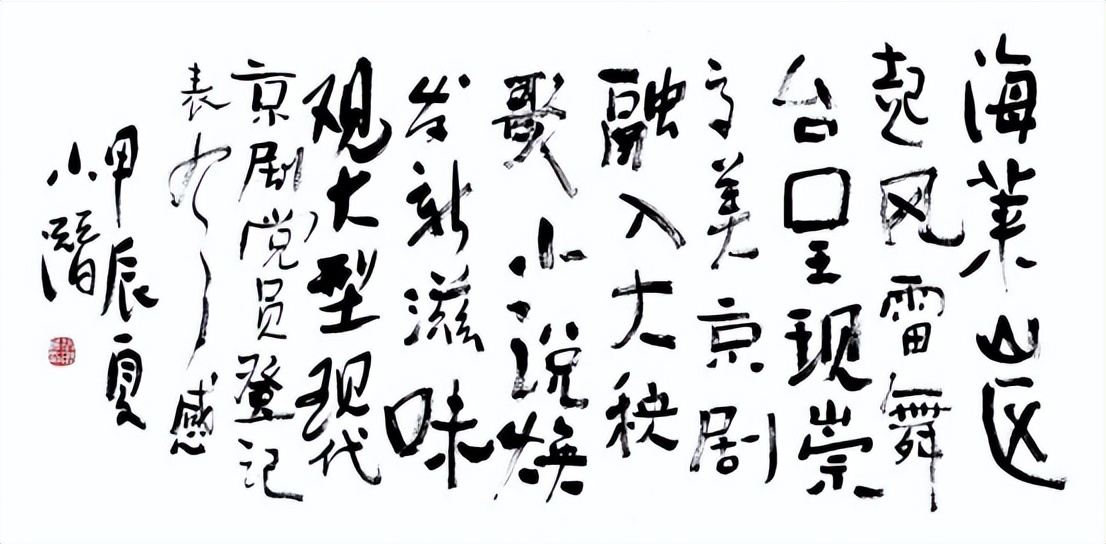 海莱山区
起风雷舞
台呈现崇
高美京剧
融入大秧
歌小说焕
发新滋味
观大型现代
京剧党员登记
表有感
甲辰夏
小